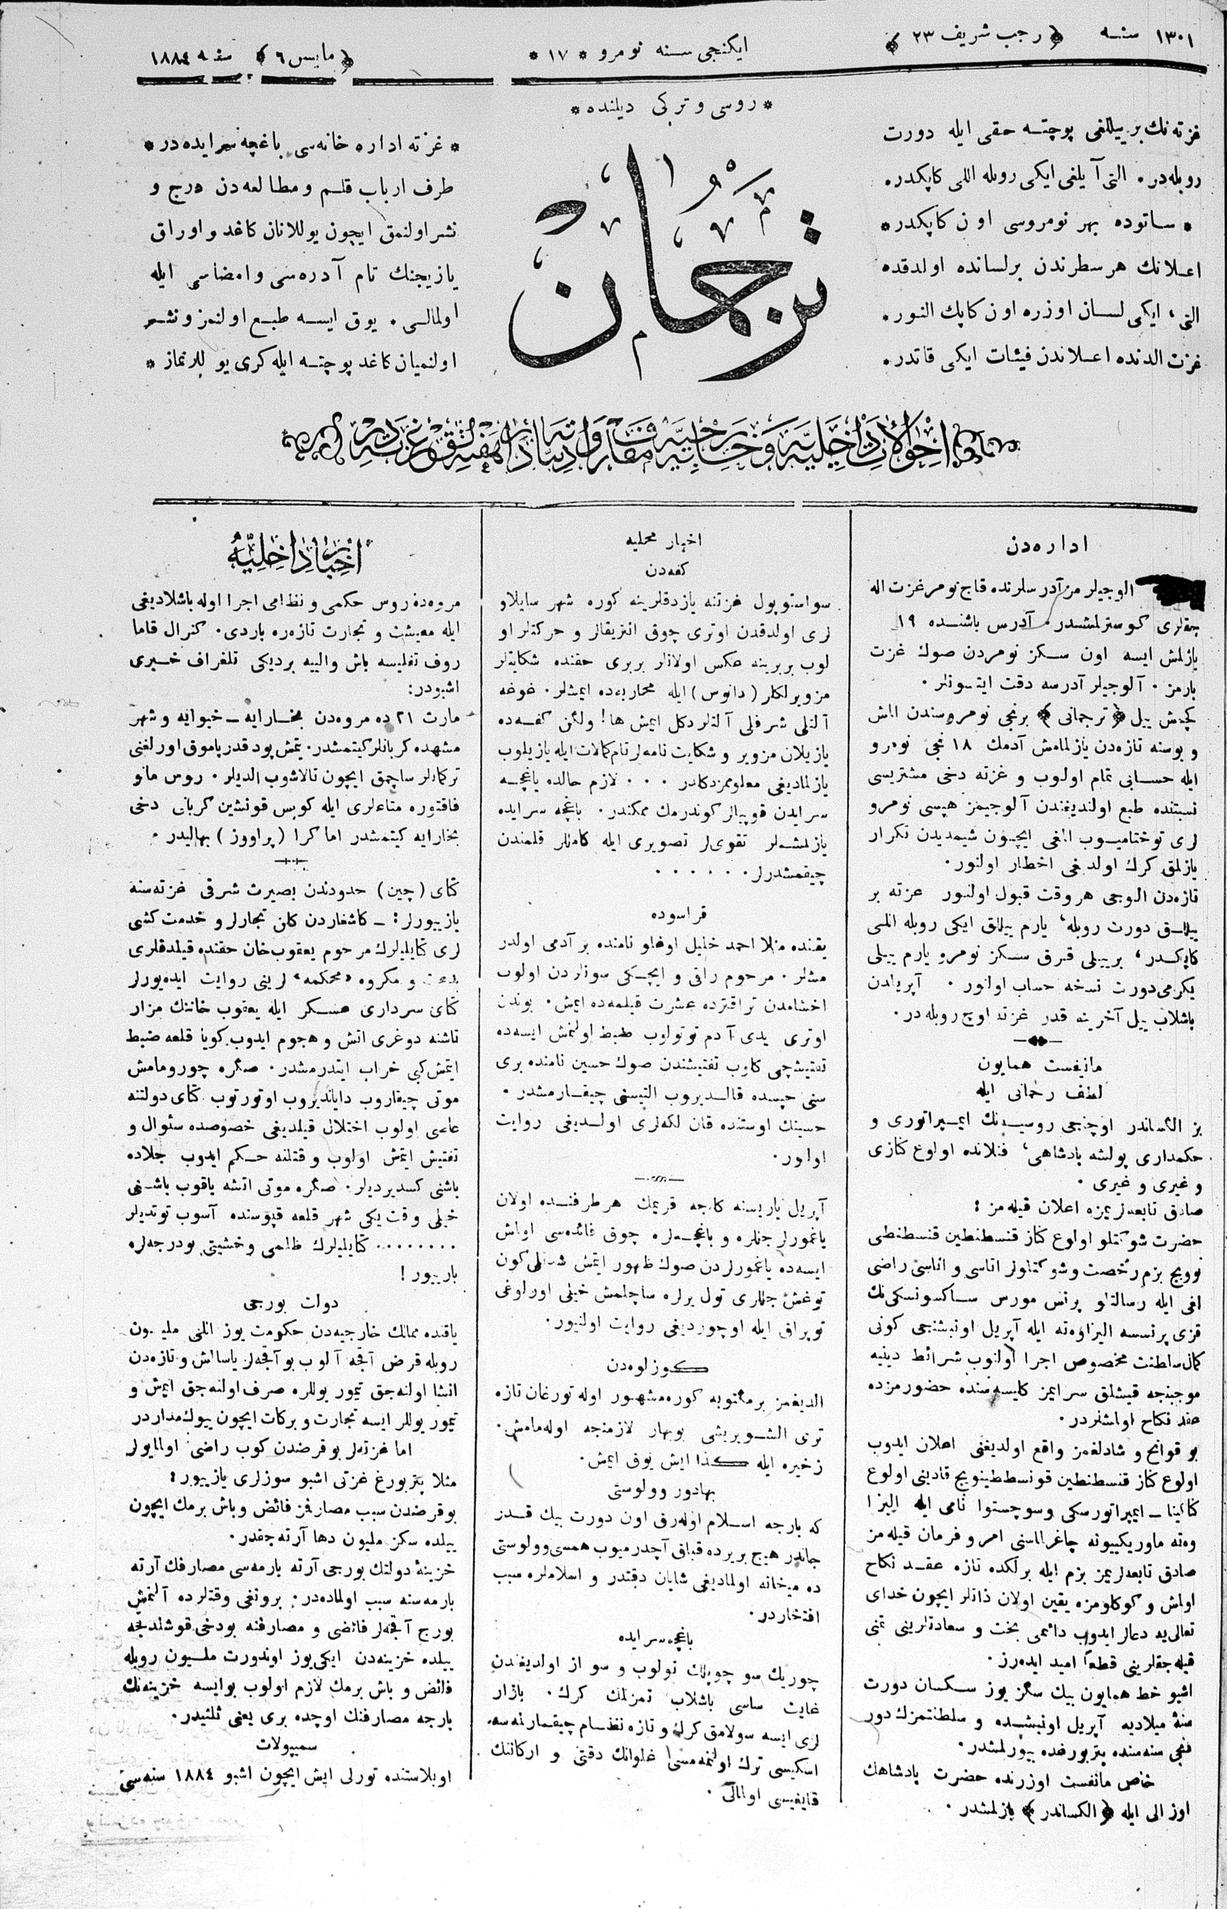 ١٣٠١ سنه ﴿ رجب شریف ٢٣ ﴾
ایکنجی سنه نومرو * ١٧ *
﴿ مایس ٦ ﴾ سنه ١٨٨٤
* روسی و ترکی دیلنده *
غزته نك بر ییللغی پوچته حقی ایله دورت
روبله در. التی آیلغی ایکی روبله اللی کاپکدر.
* ساتوده بهر نومروسی اون کاپکدر *
اعلانك هر سطرندن بر لسانده اولدقده
التی، ایکی لسان اوزره اون کاپك النور.
غزت الدنده اعلاندن فیئات ایکی قاتدر.
ترجمان
* غزته اداره خانه سی باغچه سرایده در *
طرف ارباب قلم و مطالعه دن درج و
نشر اولنمق ایچون یوللانان کاغد و اوراق
یازیجنك تام آدره سی و امضاسی ایله
اولمالی. یوق ایسه طبع اولنمز و نشر
اولنمیان کاغد پوچته ایله کری یوللانماز *
اداره دن
الوجیلرمز آدرسلرنده قاج نومر غزت اله
جقلری کوسترلمشدر. آدرس باشنده ١٩
یازلمش ایسه اون سکز نومردن صوك غزت
بارمز. آلوجیلر آدرسه دقت ایتسونلر.
کچمش ییل ﴿ ترجمانی ﴾ برنجی نومروسندن المش
و بوسنه تازه دن یازلمامش آدمك ١٨ نجی نومرو
ایله حسابی تمام اولوب و غزته دخی مشتریسی
نسبتنده طبع اولندیغندن آلوجیمز هپسی نومرو
لری توختامیوب المغی ایچون شیمدیدن تکرار
یازلمق کرك اولدغی اخطار اولنور.
تازه دن الوجی هر وقت قبول اولنور غزته بر
ییللق دورت روبله، یارم ییللق ایکی روبله اللی
کاپکدر، بر ییللی قرق سکز نومرو یارم ییللی
یکرمی دورت نسخه حساب اولنور. آپریلدن
باشلاب ییل آخرینه قدر غزته اوچ روبله در.
مانفست همایون
لطف رحمانی ایله
بز الکساندر اوچنجی روسیه نك ایمپراتوری و
حکمداری پولشه پادشاهی، فنلانده اولوغ کنازی
و غیری و غیری.
صادق تابعه لریمزه اعلان قیله مز:
حضرت شوکتلو اولوغ کناز قنسطنطین قنسطنطی
نوویچ بزم رخصت و شوکتلولر اناسی و اتاسی راضی
لغی ایله رسالتلو پرنس مورس ساکسونسکی نك
قزی پرنسسه الیزاوته ایله آپریل اونبشنجی کونی
کمال سلطنت مخصوص اجرا اولنوب شرائط دینیه
موجبنجه قیشلق سرایمز کلیسه سنده حضورمزده
عقد نکاح اولمشلردر.
بو قوانچ و شادلغمز واقع اولدیغنی اعلان ایدوب
اولوغ کناز قنسطنطین قونسطنطینویچ قادینی اولوغ
کناکینا ـ ایمپراتورسکی وسوچستوا نامی ایله الیزا
وته ماوریکییونه چاغرالاسنی امر و فرمان قیله مز
صادق تابعه لریمز بزم ایله برلکده تازه عقد نکاح
اولمش و کوکلومزه یقین اولان ذاتلر ایچون خدای
تعالی یه دعالر ایدوب دائمی بخت و سعادتلرینی تمنی
قیله جقلرینی قطعا امید ایده رز.
اشبو خط همایون بیك سکز یوز سکسان دورت
سنۀ میلادیه آپریل اونبشده و سلطنتمزك دور
تنجی سنه سنده پتربورغده بیورلمشدر.
خاص مانفست اوزرنده حضرت پادشاهك
اوز الی ایله ﴿ الکساندر ﴾ یازلمشدر.
اخبار محلیه
کفه دن
سواستوپول غزتنه یازدقلرینه کوره شهر سایلاو
لری اولدقدن اوتری چوق انتریقالر و حرکتلر او
لوب بربرینه عکس اولانلر بربری حقنده شکایتلر
مزویرلکلر (دانوس) ایله محاربه ده ایمشلر. غوغه
آلنلی شرفلی آلتلر دکل ایمش ها! ولکن کفه ده
یازیلان مزویر و شکایت نامه لر تام کمالات ایله یازیلوب
یازلمادیغی معلومزدکلدر ... لازم حالده باغچه
سرایدن قوپیالر کوندرمك ممکندر. باغچه سرایده
یازلمشلر تقوی لر تصویری ایله کاملر قلمندن
چیقمشدرلر......
قراسوده
یقینده منلا احمد خلیل اوغلو نامنده بر آدمی اولدر
مشلر. مرحوم راقی و ایچکی سودلردن اولوب
اوتری یدی آدم توتولوب ضبط اولنمش ایسه ده
تفتیشچی کلوب تفتیشندن صوك حسین نامنده بری
سنی حبسده قالدیروب التیسنی چیقارمشدر.
حسینك اوستنده قان لکه لری اولدیغی روایت
اولور.
آپریل یاریسنه کلنجه قریمك هر طرفنده اولان
یاغمورلر چنلره و باغچه لره چوق فائده سی اولمش
ایسه ده یاغمورلردن صوك ظهور ایتمش شدتلی کون
توغش چنلری تول یرلره ساچلمش خیلی اورلوغی
توپراق ایله اوچوردیغی روایت اولنیور.
کوزلوه دن
الدیغمز بر مکتوبه کوره مشهور اوله تورغان تازه
تری الشویریشی بو بهار لازمنجه اوله مامش.
زخیره ایله کذا ایش یوق ایمش.
بهادور وولوستی
که بارجه اسلام اوله رق اون دورت بیك قدر
جاندر هیچ بر یرده قباق آچدرمیوب همسی وولوستی
ده میخانه اولمادیغی شایان دقتدر و اسلاملره سبب
افتخاردر.
باغچه سرایده
چوریك سو چوبلان تولوب و سو از اولدیغندن
غایت ساسی باشلاب تمزلمك کرك. بازار
لری ایسه سولامق کرك و تازه نظام چیقارلمه سه
اسکیسی ترك اولنمه مسی غلوانك دقتی و ارکاننك
قایغیسی اولمالی.
اخبار داخلیه
مروه ده روس حکمی و نظامی اجرا اوله باشلادیغی
ایله معیشت و تجارت تازه ره باردی. کنرال قاما
روف تفلیسه باش والییه بردیکی تلغراف خبری
اشبودر:
مارت ٢١ ده مروه دن بخارایه ـ خیوایه و شهر
مشهده کربانلر کیتمشدر. یتمش پود قدر پاموق اورلغنی
ترکمانلر ساچمق ایچون تالاشوب الدیلر. روس مانو
فاقتوره متاعلری ایله کوپس قونشین کربانی دخی
بخارایه کیتمشدر اما کرا (پراووز) بهالیدر.
کتای (چین) حدودندن بصیرت شرقی غزته سنه
یازیورلر: ـ کاشغاردن کلن تجارلر و خدمت کشی
لری کتایلیلرك مرحوم یعقوب خان حقنده قیلدقلری
و مکروه «محکمه» لرینی روایت ایده یورلر
کتای سرداری عسکر ایله یعقوب خاننك مزار
تاشنه دوغری اتش و هجوم ایدوب کویا قلعه ضبط
ایتمش کبی خراب ایتدرمشدر. صکره چورومامش
موتی چیقاروب دایاندیروب اوتورتوب کتای دولتنه
عاصی اولوب اختلال قیلدیغی خصوصده سئوال و
تفتیش ایتمش اولوب و قتلنه حکم ایدوب جلاده
باشنی کسدیردیلر. صکره موتی اتشه یاقوب باشنی
خیلی وقت یکی شهر قلعه قپوسنده آسوب توتدیلر
........ کتایلیلرك ظلمی و خشیتی بو درجه لره
باریبور!
دولت بورجی
یاقنده ممالك خارجیه دن حکومت یوز اللی ملیون
روبله قرض آقچه آلوب بو آقچه لر یاسالش و تازه دن
انشا اولنه جق تیمور یوللره صرف اولنه جق ایمش و
تیمور یوللر ایسه تجارت و برکات ایچون بیوك مداردر
اما غزته لر بو قرضدن کوب راضی اولمایولر
مثلا پتربورغ غزتی اشبو سوزلری یازیبور:
بو قرضدن سبب مصارفز فائض و باش برمك ایچون
ییلده سکز ملیون دها آرته جقدر.
خزینۀ دولتك بورجی آرته بارمه سی مصارفك آرته
بارمه سنه سبب اولماده در. برونغی وقتلرده آلنمش
بورج آقچه لر فائضی و مصارفنه بو دخی قوشلدیجه
ییلده خزینه دن ایکی یوز اوندورت ملیون روبله
فائض و باش برمك لازم اولوب بو ایسه خزینه نك
بارجه مصارفنك اوچده بری یعنی ثلثیدر.
سمیپولات
اوبلاستنده تورلی ایش ایچون اشبو ١٨٨٤ سنه سی